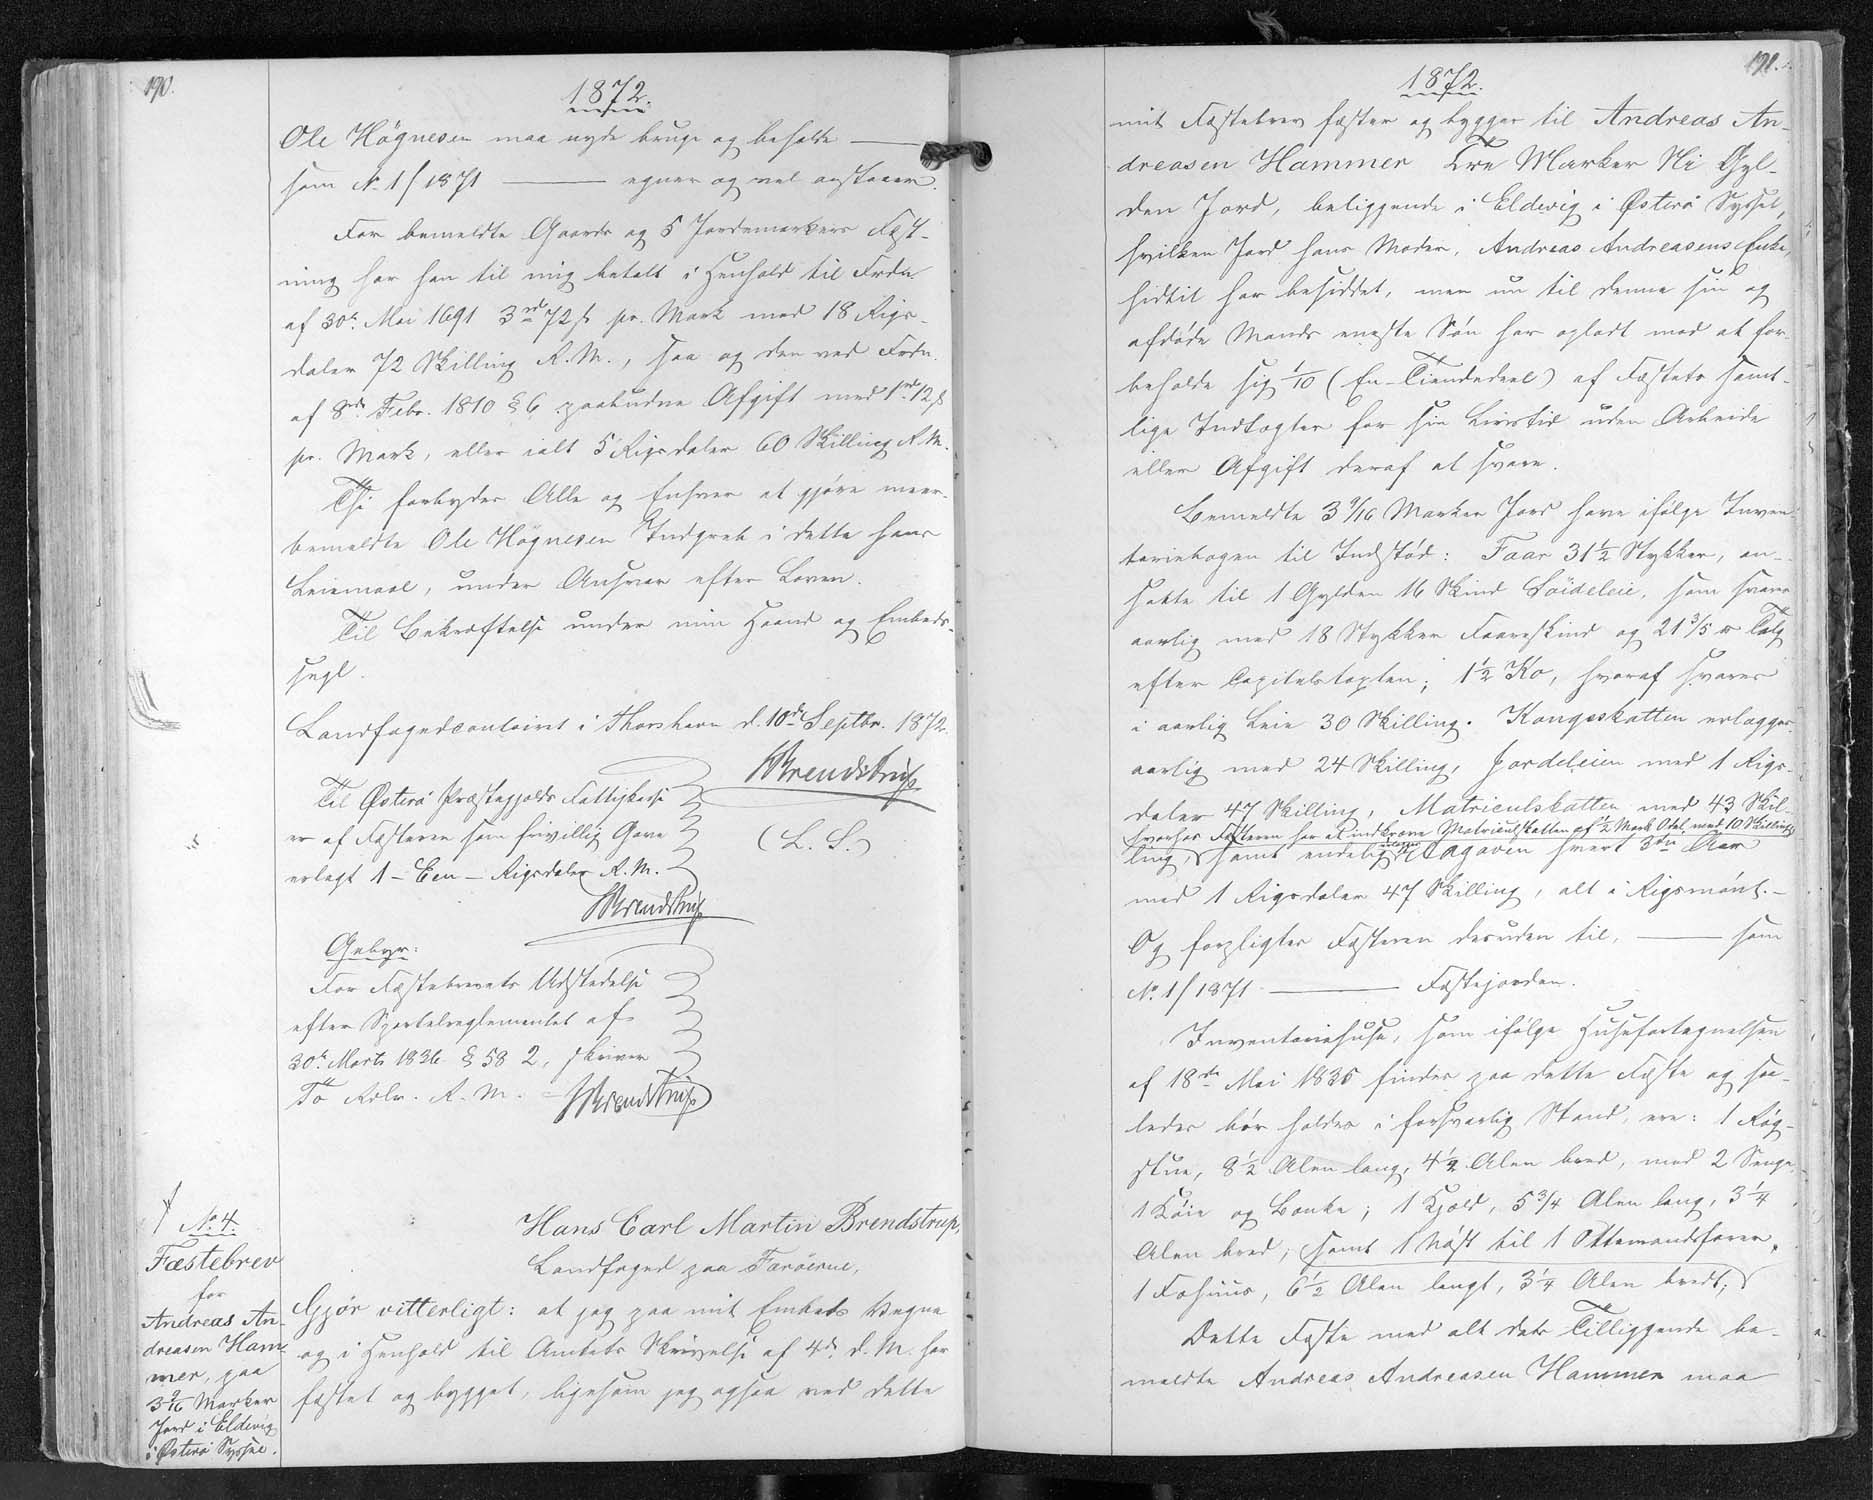 190.
1872.
Ole Högnesen maa nyde bruge og beholde ——
som No 1/1871 —— egner og vel anstaaer.
For bemeldte Gaards og 5 Jordemarkers Fæst-
ning har han til mig betalt i Henhold til Frdn.
af 30te Mai 1691 3rd 72 ß pr. Mark med 18 Rigs-
daler 72 Skilling R.M., saa og den ved Frdn.
af 8de Febr. 1810 § 6 paabudne Afgift med 1rd 12 ß
pr. Mark, eller ialt 5 Rigsdaler 60 Skilling R.M.
Thi forbydes Alle og Enhver at gjøre meer-
bemeldte Ole Högnesen Indgreb i dette hans
Leiemaal, under Ansvar efter Loven.
Til Bekræftelse under min Haand og Embeds-
segl.
Landfogedcontoiret i Thorshavn d. 10de Septbr. 1872.
HBrendstrup
(L. S.)
Til Østerö Præstegjelds Fattigkasse
er af Fæsteren som frivillig Gave
erlagt 1 - Een - Rigsdaler R.M.
HBrendstrup
Gebyr:
For Fæstebrevets Udstedelse
efter Sportelreglementet af
30te Marts 1836 § 58 2, skriver
To Rdlr. R.M.
HBrendstrup
No. 4.
Fæstebrev
for
Andreas An-
dreasen Ham-
mer, paa
3 9/16 Marker
Jord i Eldevig
i Østerö Syssel.
Hans Carl Martin Brendstrup,
Landfoged paa Færöerne,
Gjør vitterligt: at jeg paa mit Embeds Vegne
og i Henhold til Amtets Skrivelse af 4de d. M. har
fæstet og bygget, ligesom jeg ogsaa ved dette
191.
1872.
mit Fæstebrev fæster og bygger til Andreas An-
dreasen Hammer Tre Marker Ni Gyl-
den Jord, beliggende i Eldevig i Østerö Syssel,
hvilken Jord hans Moder, Andreas Andreasens Enke,
hidtil har besiddet, men nu til denne sin og
afdöde Mands eneste Sön har opladt mod at for-
beholde sig 1/10 (En-Tiendedeel) af Fæstets samt-
lige Indtægter for sin Livstid uden Arbeide
eller Afgift deraf at svare.
Bemeldte 3 9/16 Marker Jord have ifølge Inven-
tariebogen til Indstød: Faar 31 1/2 Stykker, an-
satte til 1 Gylden 16 Skind Söideleie, som svares
aarlig med 18 Stykker Faareskind og 21 3/5 ℔ Talg
efter Capitelstaxten; 1 1/2 Ko, hvoraf svares
i aarlig Leie 30 Skilling. Kongsskatten erlægges
aarlig med 24 Skilling, Jordeleien med 1 Rigs-
daler 47 Skilling, Matriculskatten med 43 Skil-
hvorhos Fæsteren har at indkræve Matriculskatten af 1/2 Mark Odel med 10 Skilling,
ling, samt endelig erlægges Tagaven hvert 3die Aar
med 1 Rigsdaler 47 Skilling, alt i Rigsmönt.—
Og forpligtes Fæsteren desuden til, —— som
No. 1/1871 —— Fæstejorden.
Inventariehuse, som ifølge Husefortegnelsen
af 18de Mai 1835 findes paa dette Fæste og saa-
ledes bör holdes i forsvarlig Stand, ere: 1 Røg-
stue, 8 1/2 Alen lang, 4 1/2 Alen bred, med 2 Senge,
1 Köie og Bænke; 1 Hjald, 5 3/4 Alen lang, 3 1/4
Alen bred; samt 1 Nöst til 1 Ottemandsfarer,
1 Fæhuus, 6 1/2 Alen langt, 3 1/4 Alen bredt;
Dette Fæste med alt dets Tilliggende be-
meldte Andreas Andreasen Hammer maa